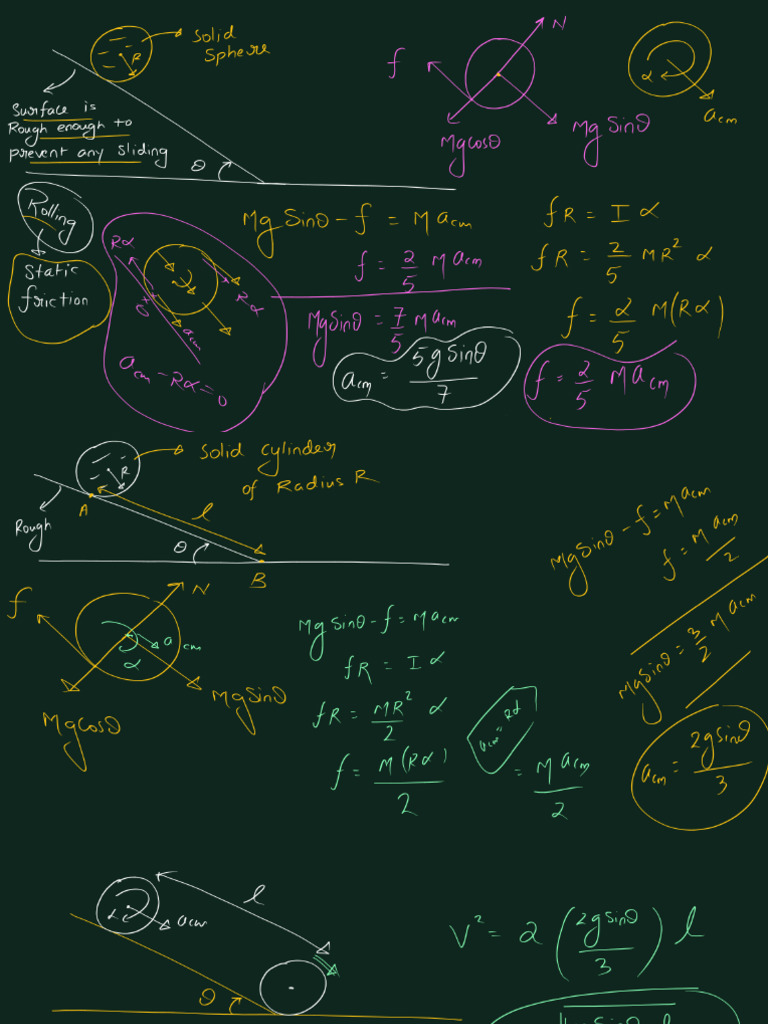 R
solid
Sphere
Surface is
Rough enough to
prevent any sliding
θ
f
N
Mgcosθ
MgSinθ
α
acm
Rolling
Static
friction
Rα
Rα
acm
acm - Rα = 0
MgSinθ - f = Macm
f = 2/5 Macm
MgSinθ = 7/5 Macm
acm = 5gSinθ/7
fR = I α
fR = 2/5 MR² α
f = 2/5 M(Rα)
f = 2/5 Macm
R
solid cylinder
of Radius R
A
l
Rough
θ
B
f
N
acm
α
MgSinθ
Mgcosθ
Mgsinθ - f = Macm
fR = I α
fR = MR²/2 α
f = M(Rα)/2
acm = Rα
= Macm/2
MgSinθ - f = Macm
f = Macm/2
MgSinθ = 3/2 Macm
acm = 2gsinθ/3
α
acm
l
θ
V² = 2 (2gsinθ/3) l